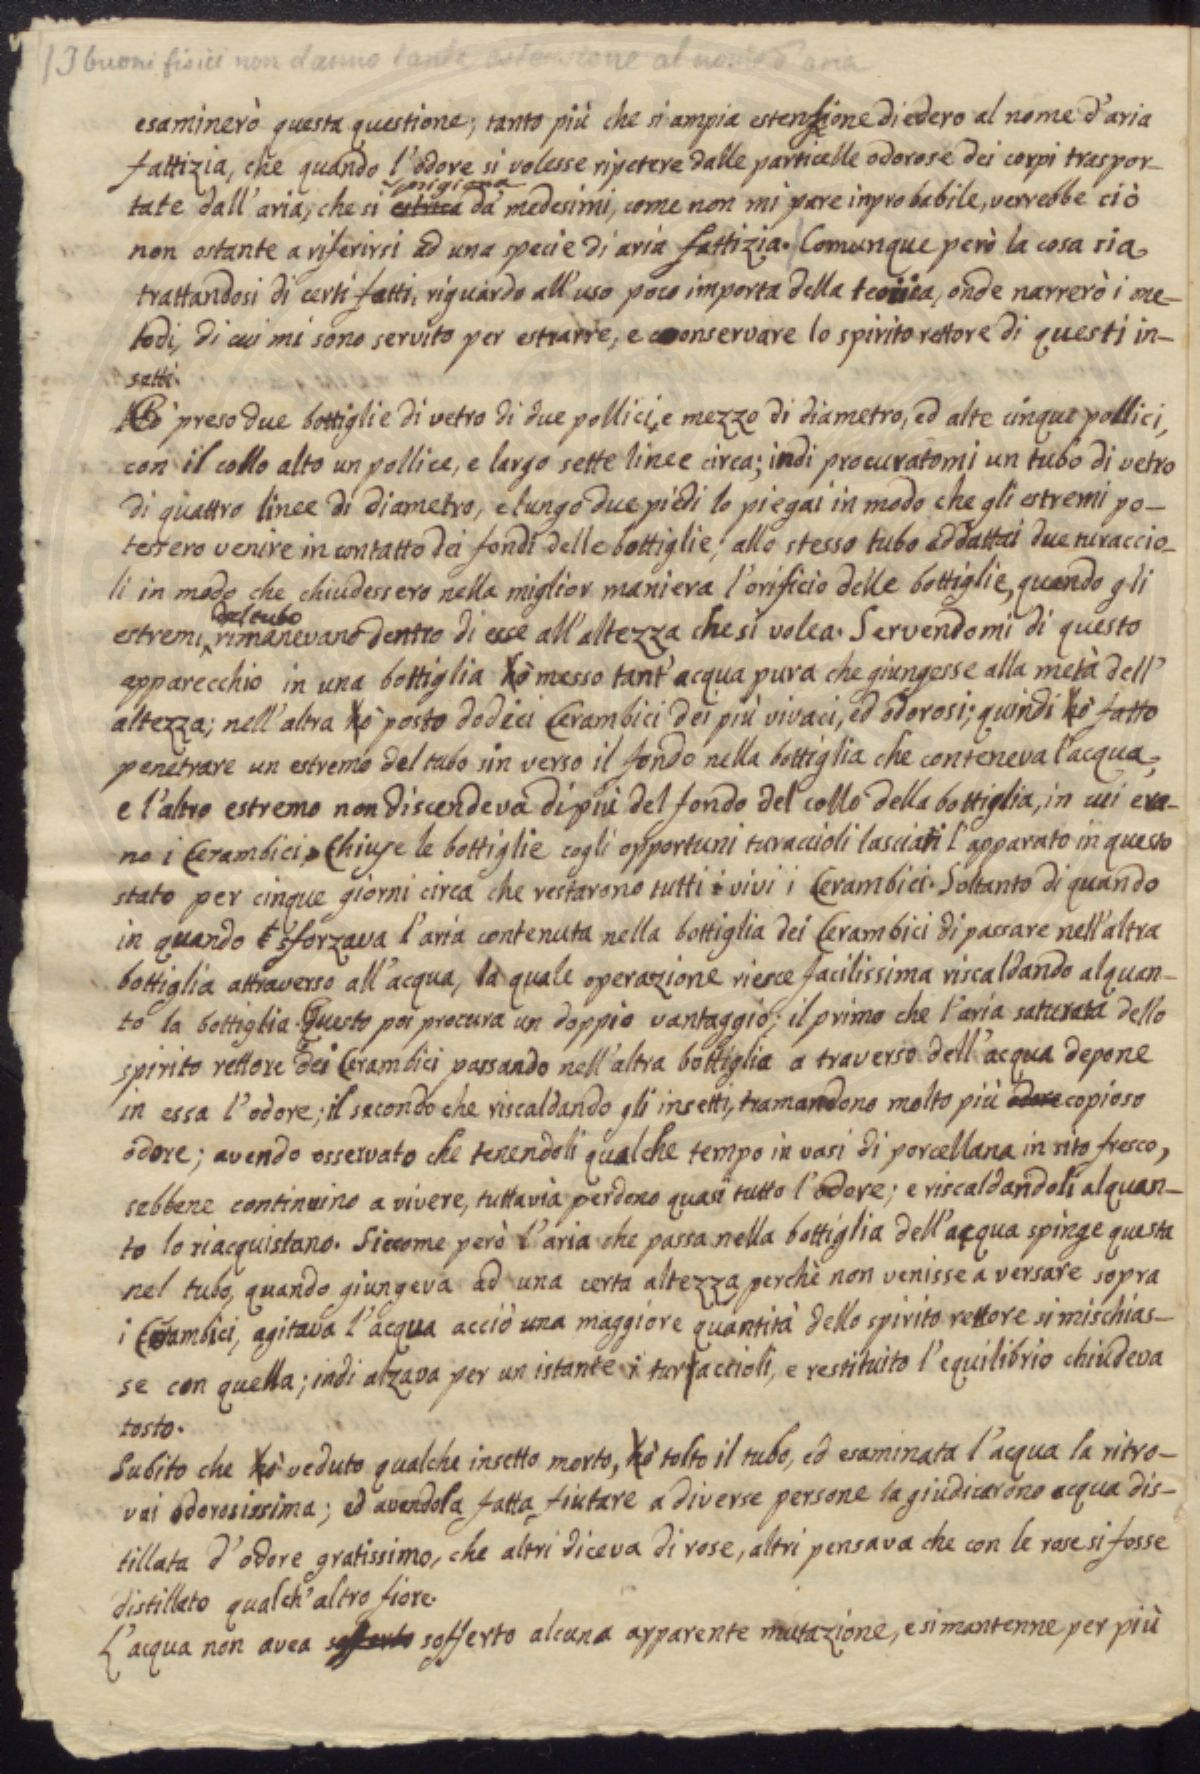 I buoni fisici non danno tanta estensione al nome d'aria
esaminerò questa questione; tanto più che sì ampia estensione diedero al nome d'aria
fattizia, che quando l'odore si volesse ripetere dalle particelle odorose dei corpi traspor-
tate dall'aria, che si da' medesimi, come non mi pare inprobabile, verrebbe ciò
non ostante a riferirsi ad una specie di aria fattizia. Comunque però la cosa sia
trattandosi di certi fatti, riguardo all'uso poco importa della teorica, onde narrerò i me-
todi, di cui mi sono servito per estrarre, e conservare lo spirito rettore di questi in-
setti.
Ò preso due bottiglie di vetro di due pollici, e mezzo di diametro, ed alte cinque pollici,
con il collo alto un pollice, e largo sette linee circa; indi procuratomi un tubo di vetro
di quattro linee di diametro, e lungo due piedi lo piegai in modo che gli estremi po-
tessero venire in contatto dei fondi delle bottiglie, allo stesso tubo addattai due turaccio-
li in modo che chiudessero nella miglior maniera l'orificio delle bottiglie, quando gli
estremi, del tubo rimanevano dentro di esse all'altezza che si volea. Servendomi di questo
apparecchio in una bottiglia hò messo tant'acqua pura che giungesse alla metà dell'
altezza; nell'altra hò posto dodeci Cerambici dei più vivaci, ed odorosi; quindi hò fatto
penetrare un estremo del tubo sin verso il fondo nella bottiglia che conteneva l'acqua,
e l'altro estremo non discendeva di più del fondo del collo della bottiglia, in cui era-
no i Cerambici. Chiuse le bottiglie cogli opportuni turaccioli lasciai l'apparato in questo
stato per cinque giorni circa che restarono tutti vivi i Cerambici. Soltanto di quando
in quando sforzava l'aria contenuta nella bottiglia dei Cerambici di passare nell'altra
bottiglia attraverso all'acqua, la quale operazione riesce facilissima riscaldando alquan-
to la bottiglia. Questo poi procura un doppio vantaggio; il primo che l'aria saturata dello
spirito rettore dei Cerambici passando nell'altra bottiglia a traverso dell'acqua depone
in essa l'odore; il secondo che riscaldando gli insetti, tramandono molto più odore copioso
odore; avendo osservato che tenendoli qualche tempo in vasi di porcellana in sito fresco,
sebbene continuino a vivere, tuttavia perdono quasi tutto l'odore; e riscaldandoli alquan-
to lo riacquistano. Siccome però l'aria che passa nella bottiglia dell'acqua spinge questa
nel tubo, quando giungeva ad una certa altezza, perchè non venisse a versare sopra
i Cerambici, agitava l'acqua acciò una maggiore quantità dello spirito rettore si mischias-
se con quella; indi alzava per un istante i turaccioli, e restituito l'equilibrio chiudeva
tosto.
Subito che hò veduto qualche insetto morto, hò tolto il tubo, ed esaminata l'acqua la ritro-
vai odorosissima; ed avendola fatta fiutare a diverse persone la giudicarono acqua dis-
tillata d'odore gratissimo, che altri diceva di rose, altri pensava che con le rose si fosse
distillato qualch'altro fiore.
L'acqua non avea sofferto sofferto alcuna apparente mutazione, e si mantenne per più